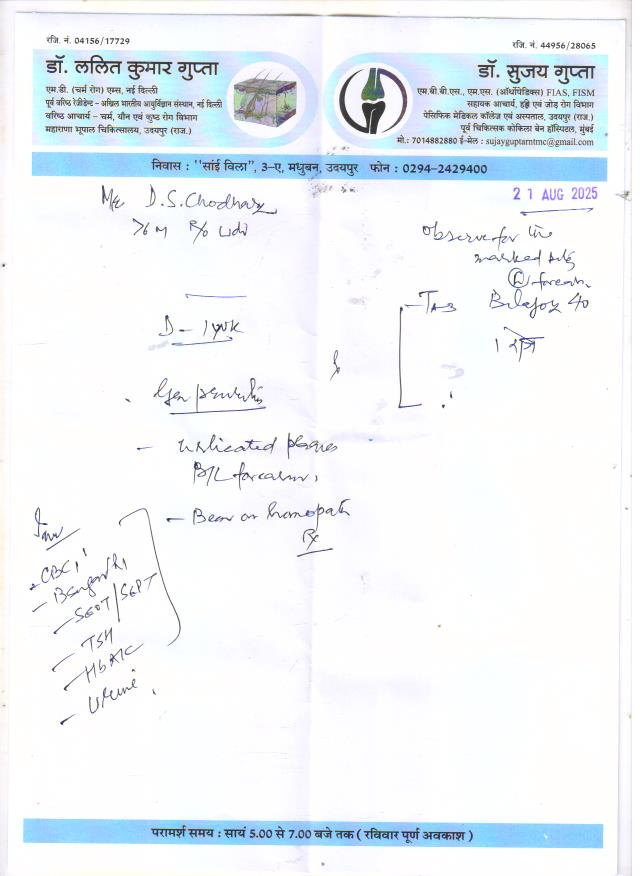 रजि. नं. 04156/17729
डॉ. ललित कुमार गुप्ता
एम.डी. (चर्म रोग) एम्स, नई दिल्ली
पूर्व वरिष्ठ रेजीडेन्ट – अखिल भारतीय आयुर्विज्ञान संस्थान, नई दिल्ली
वरिष्ठ आचार्य – चर्म, यौन एवं कुष्ठ रोग विभाग
महाराणा भूपाल चिकित्सालय, उदयपुर (राज.)
रजि. नं. 44956/28065
डॉ. सुजय गुप्ता
एम.बी.बी.एस., एम.एस. (ऑर्थोपेडिक्स) FIAS, FISM
सहायक आचार्य, हड्डी एवं जोड़ रोग विभाग
पेसिफिक मेडिकल कॉलेज एवं अस्पताल, उदयपुर (राज.)
पूर्व चिकित्सक कोकिला बेन हॉस्पिटल, मुंबई
मो.: 7014882880 ई-मेल : sujayguptarntmc@gmail.com
निवास : "सांई विला", 3–ए, मधुबन, उदयपुर फोन : 0294-2429400
21 AUG 2025
Mr D.S. Chodhary
76 M R/o Udr
D – 1 wk
Gen pruritis
– urticated plaques
B/L forearm,
– Been on homopath
Rx
Observe for the
marked
forearm.
– TAB Bilajoy 40
1 रोज
Inv
– CBC
– SGOT/SGPT
– TSH
– HbA1C
– Urine
परामर्श समय : सायं 5.00 से 7.00 बजे तक ( रविवार पूर्ण अवकाश )